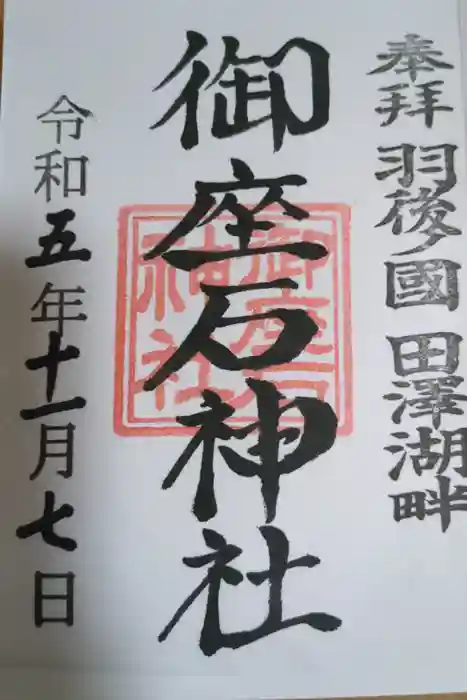 奉拜 羽後ノ國 田澤湖畔
御座石神社
御座石
神社
令和五年十一月七日